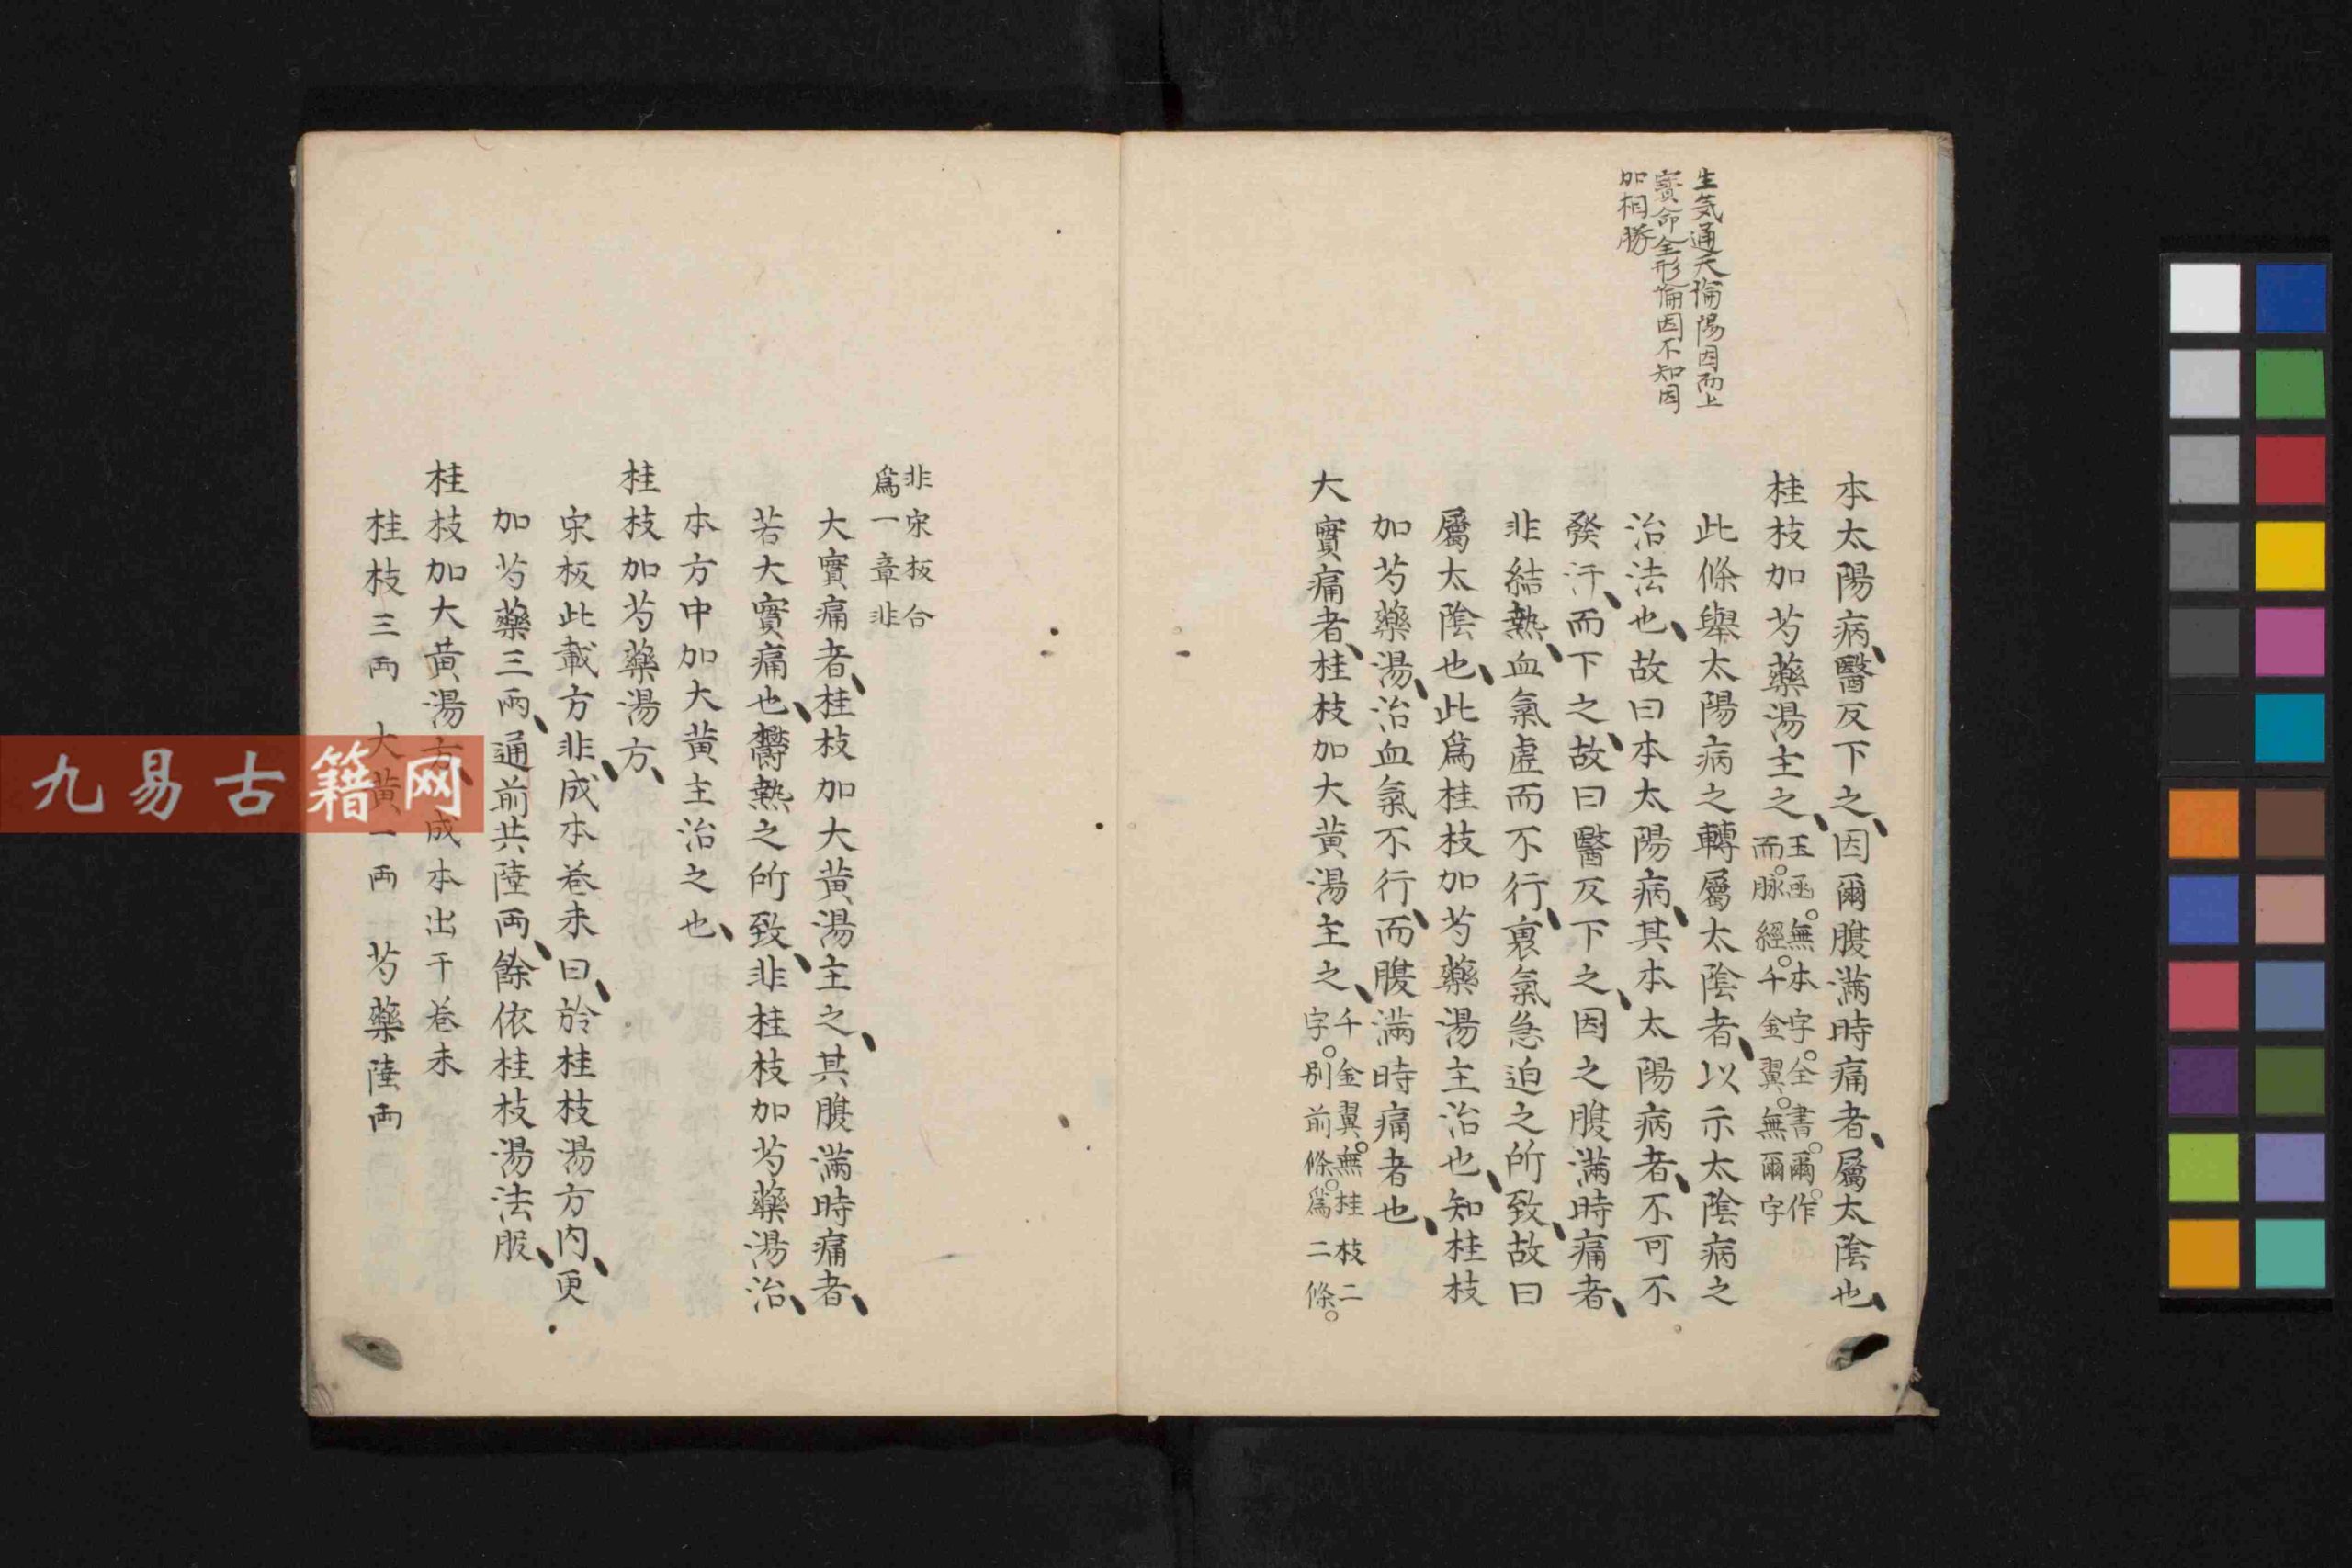 生気通天倫陽因而上
寳命全形倫因不知因
加相勝
本太陽病、醫反下之、因爾腹滿時痛者、屬太陰也、
桂枝加芍藥湯主之、玉函。無本字。全書。爾。作
而。脉經。千金翼。無爾字
此條舉太陽病之轉屬太陰者、以示太陰病之
治法也、故曰本太陽病、其本太陽病者、不可不
發汗、而下之、故曰醫反下之、因之腹滿時痛者、
非結熱、血氣虛而不行、裏氣急迫之所致、故曰
屬太陰也、此爲桂枝加芍藥湯主治也、知桂枝
加芍藥湯、治血氣不行、而腹滿時痛者也、
大實痛者、桂枝加大黄湯主之、千金翼。無桂枝二
字。別前條。爲二條。
非宋板合
爲一章非
大實痛者、桂枝加大黄湯主之、其腹滿時痛者、
若大實痛也、欝熱之所致、非桂枝加芍藥湯治、
本方中加大黄主治之也、
桂枝加芍藥湯方、
宋板此載方非、成本卷末曰、於桂枝湯方内、更
加芍藥三兩、通前共陸兩、餘依桂枝湯法服、
桂枝加大黄湯方、成本出千卷末
桂枝三两 大黄一两 芍藥陸两
九易古籍网